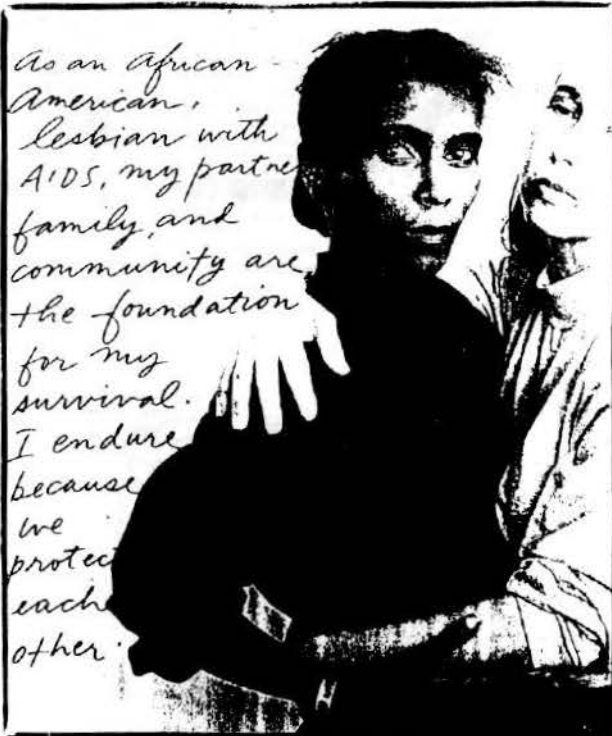 As an African-
American,
lesbian with
AIDS, my partne
family, and
community are
the foundation
for my
survival.
I endure
because
we
protect
each
other.